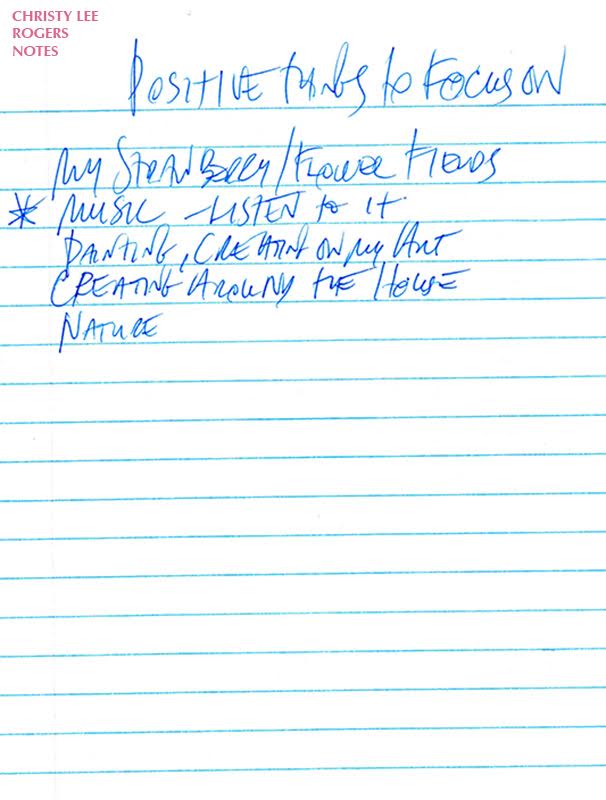 CHRISTY LEE
ROGERS
NOTES
POSITIVE THINGS to FOCUS ON
MY STRAWBERRY/FLOWER FIELDS
* MUSIC - LISTEN to IT
PAINTING, CREATING ON MY ART
CREATING AROUND THE HOUSE
NATURE